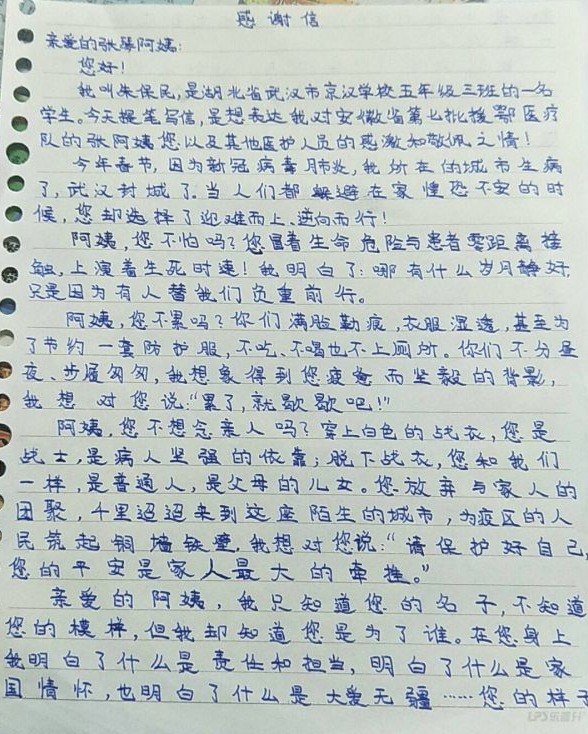 感谢信
亲爱的张琴阿姨:
您好!
我叫朱保民,是湖北省武汉市京汉学校五年级三班的一名
学生。今天提笔写信,是想表达我对安徽省第七批援鄂医疗
队的张阿姨您以及其他医护人员的感激和敬佩之情!
今年春节,因为新冠病毒肺炎,我所在的城市生病
了,武汉封城了。当人们都躲避在家惶恐不安的时
候,您却选择了迎难而上、逆向而行!
阿姨,您不怕吗?您冒着生命危险与患者零距离接
触,上演着生死时速!我明白了:哪有什么岁月静好,
只是因为有人替我们负重前行。
阿姨,您不累吗?你们满脸勒痕,衣服湿透,甚至为
了节约一套防护服,不吃、不喝也不上厕所。你们不分昼
夜、步履匆匆,我想象得到您疲惫而坚毅的背影,
我想对您说:“累了,就歇歇吧!”
阿姨,您不想念亲人吗?穿上白色的战衣,您是
战士,是病人坚强的依靠;脱下战衣,您和我们
一样,是普通人,是父母的儿女。您放弃与家人的
团聚,千里迢迢来到这座陌生的城市,为疫区的人
民筑起铜墙铁壁,我想对您说:“请保护好自己,
您的平安是家人最大的牵挂。”
亲爱的阿姨,我只知道您的名字,不知道
您的模样,但我却知道您是为了谁。在您身上
我明白了什么是责任和担当,明白了什么是家
国情怀,也明白了什么是大爱无疆……您的样子